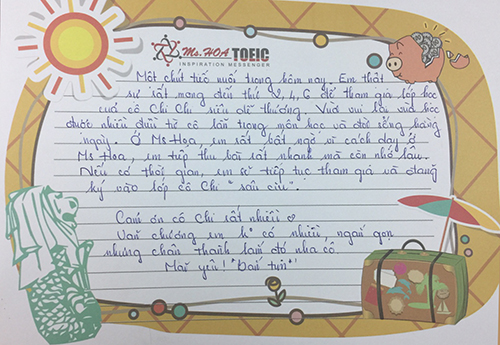 Ms. HOA TOEIC
INSPIRATION MESSENGER
Một chút tiếc nuối trong hôm nay. Em thật
sự rất mong đến thứ 2, 4, 6 để tham gia lớp học
của cô Chi Chi siêu dễ thương. Vừa vui lại vừa học
được nhiều điều từ cô lẫn trong môn học và đời sống hàng
ngày. Ở Ms Hoa, em rất bất ngờ vì cách dạy ở
Ms Hoa, em tiếp thu bài rất nhanh mà còn nhớ lâu.
Nếu có thời gian, em sẽ tiếp tục tham gia và đăng
ký vào lớp cô Chi "siêu cute".
Cảm ơn cô Chi rất nhiều ♡
Văn chương em k° có nhiều, ngắn gọn
nhưng chân thành lắm đó nha cô
Mãi yêu!